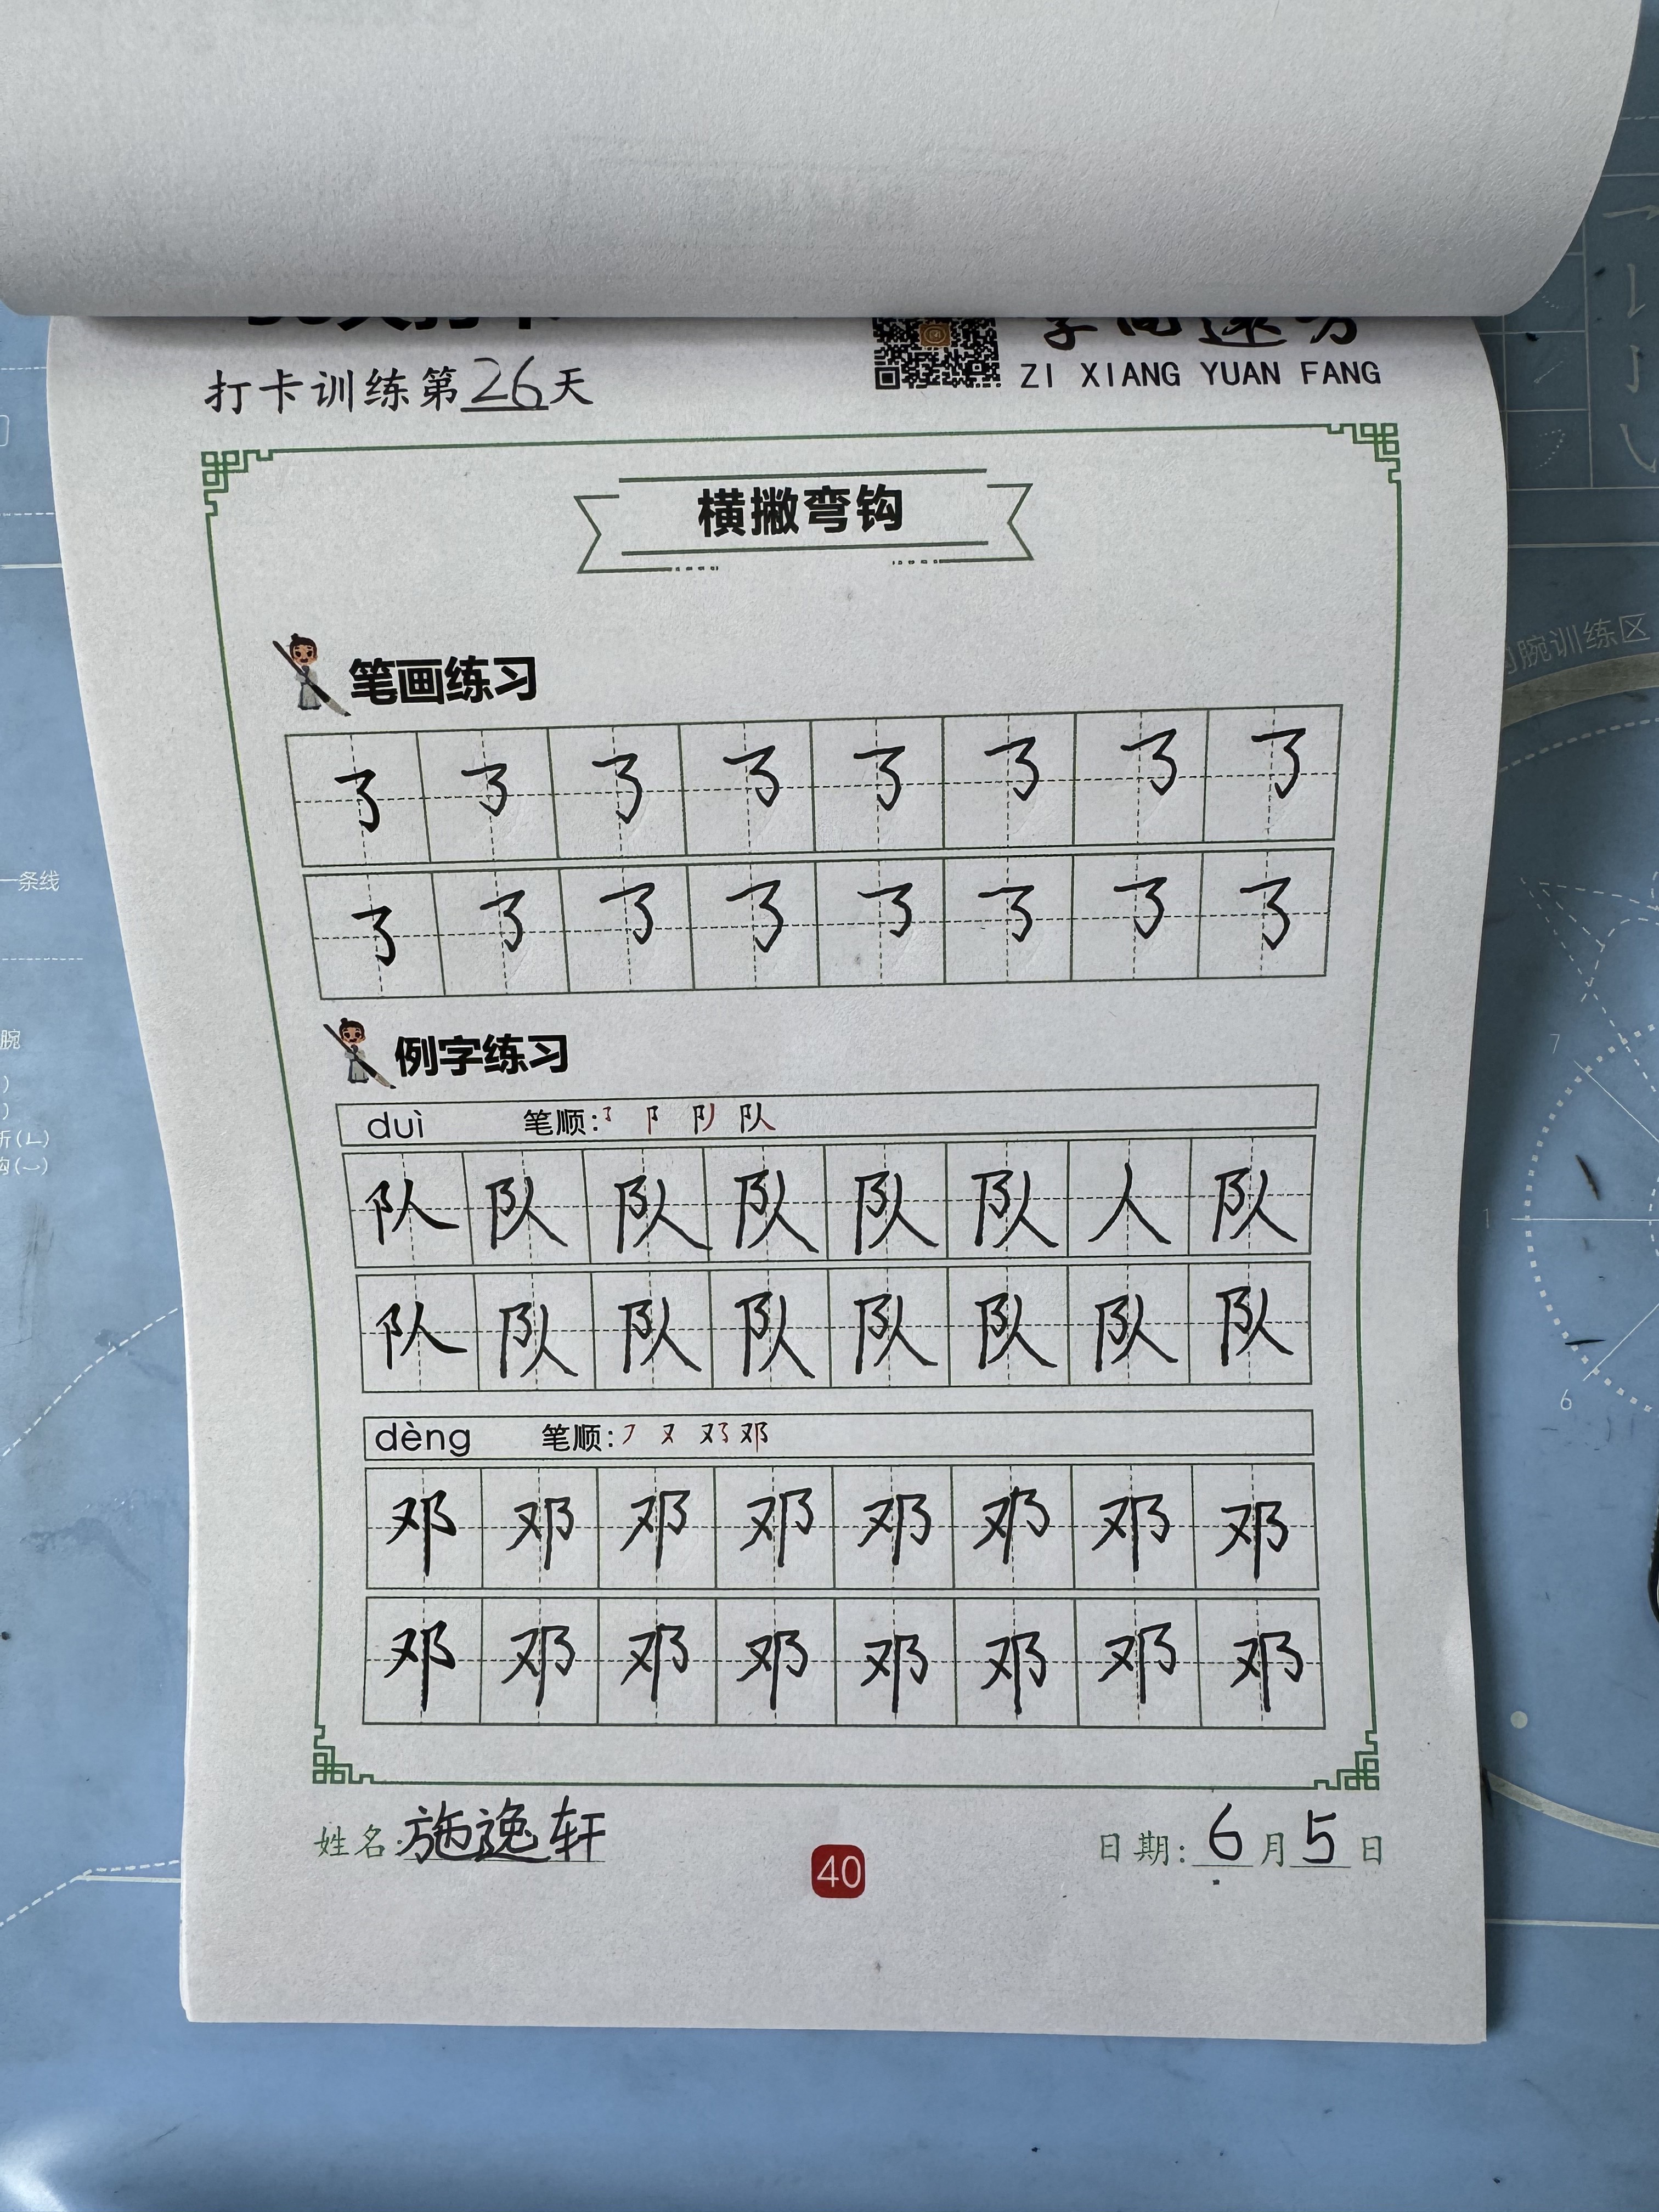 打卡训练第26天
ZI XIANG YUAN FANG
横撇弯钩
笔画练习
例字练习
duì 笔顺:
队 队 队 队 队 队 人 队
队 队 队 队 队 队 队 队
dèng 笔顺:
邓 邓 邓 邓 邓 邓 邓 邓
邓 邓 邓 邓 邓 邓 邓 邓
姓名:施逸轩
40
日期:6月5日
腕训练区
一条线
腕
7
1
6